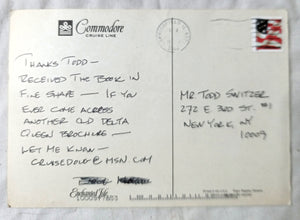 Commodore
CRUISE LINE
THANKS TODD —
RECEIVED THE BOOK IN
FINE SHAPE — IF YOU
EVER COME ACROSS
ANOTHER OLD DELTA
QUEEN BROCHURE —
LET ME KNOW —
CRUISEDOUG@MSN.COM
Enchanted Isle
MR TODD SWITZER
272 E 3RD ST. #1
NEW YORK, NY
10009